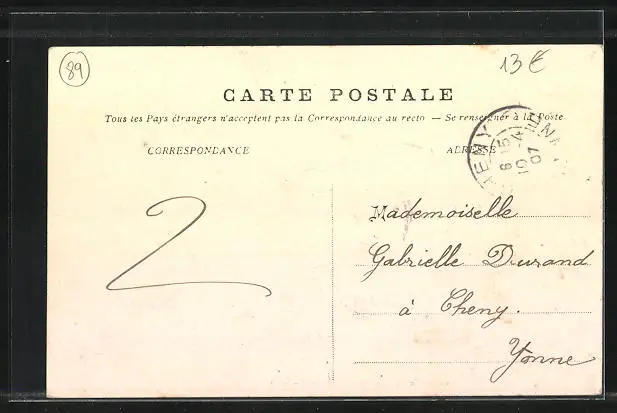 89
13 €
CARTE POSTALE
Tous les Pays étrangers n'acceptent pas la Correspondance au recto — Se renseigner à la Poste
CORRESPONDANCE
ADRESSE
2
Mademoiselle
Gabrielle Durand
à Cheny.
Yonne